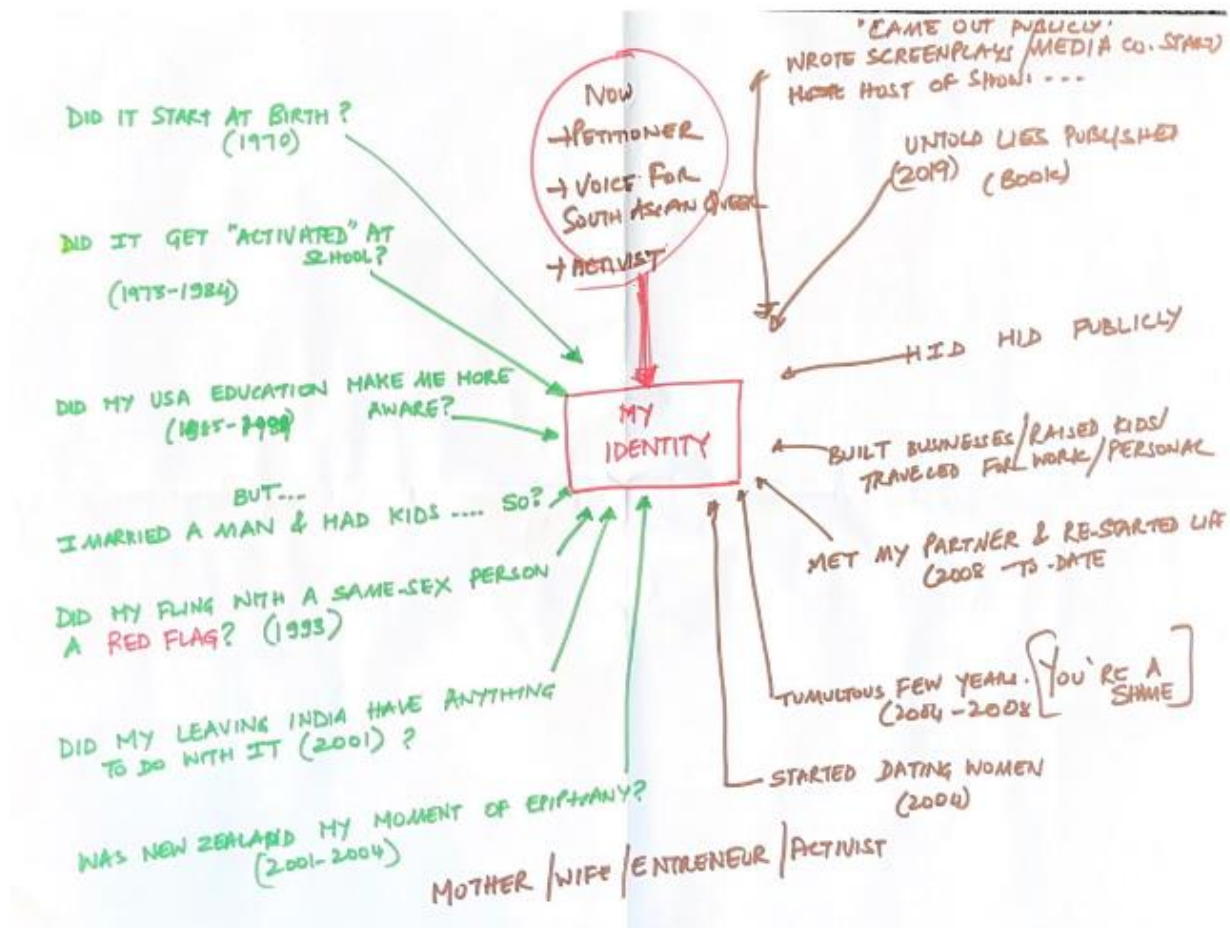 DID IT START AT BIRTH?
(1970)
DID IT GET "ACTIVATED" AT
SCHOOL?
(1975-1984)
DID MY USA EDUCATION MAKE ME MORE
AWARE?
BUT...
I MARRIED A MAN & HAD KIDS .... SO?
DID MY FLING WITH A SAME-SEX PERSON
A RED FLAG? (1993)
DID MY LEAVING INDIA HAVE ANYTHING
TO DO WITH IT (2001) ?
WAS NEW ZEALAND MY MOMENT OF EPIPHANY?
(2001-2004)
NOW
→PETITIONER
→ VOICE FOR
SOUTH ASIAN QUEER
→ ACTIVIST
MY
IDENTITY
"CAME OUT PUBLICLY.
WROTE SCREENPLAYS/MEDIA CO. START)
HOST OF SHOW: ...
UNTOLD LIES PUBLISHED
(2019) (BOOK)
HID HID PUBLICLY
BUILT BUSINESSES/RAISED KIDS/
TRAVELED FOR WORK/PERSONAL
MET MY PARTNER & RE-STARTED LIFE
(2008 -TO-DATE
TUMULTOUS FEW YEARS. [YOU'RE A
SHAME]
(2004-2008
STARTED DATING WOMEN
(2004)
MOTHER/WIFE/ENTRENEUR/ACTIVIST